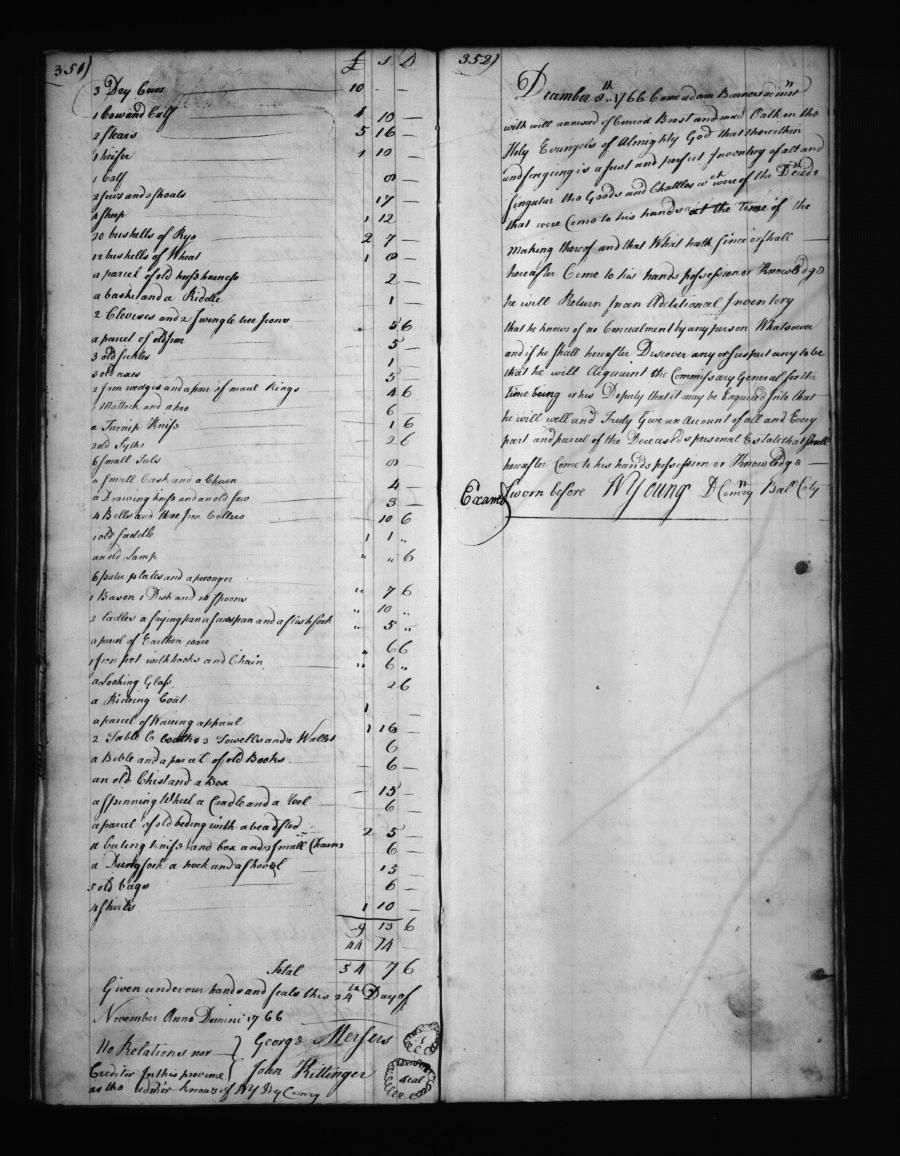 351)
£ S D
3 Dry Cows 10 - -
1 Cow and Calf 4 10 —
2 Stears 5 16 —
1 heifer 1 10 —
1 Calf 8 —
2 sows and shoats 17 —
4 Sheep 1 12
20 bushells of Rye 2 7 —
12 bushells of Wheat 1 8 —
a parcel of old horss harness 2 —
a basket and a Riddle 1 —
2 Clevises and 2 swingle tree Irons 5 6
a parcel of old Iron 5 —
3 old sickles 1 —
3 old 5 —
2 Iron wedges and a pair of maul Rings 4 6
1 Mattock and a hoe 6 —
a Turnip Knife 1 6
2 old Syths 2 6
6 Small Tubs 8 —
a small Cask and a Churn 4 —
a Drawing knife and an old saw 3 —
4 Bells and three Iron Collers 10 6
1 old saddle 1 1 "
an old Lamp " " 6
6 puter plates and a poronger
1 Bason 1 Dish and 14 spoons " 7 6
" 10 "
2 ladles a frying pan a sawspan and a flesh fork " 5 "
a parcel of Earthen ware 6 6
1 Iron pot with hooks and Chain " 6 "
a Looking Glass 2 6
a Rideing Coat 1 —
a parcel of Waring apparil 1 16 —
2 Table Cloaths 3 Towells and a Wallet 6 —
a Bible and a parcel of old Books 6 —
an old Chest and a Box — 15 —
a spinning Wheel a Cradle and a reel 6 —
a parcel of old beding with a beadsted 2 5 —
a cuting knife and box and 2 small Chains 6 —
a Dungfork a hook and a shovel 13 —
5 old bags 6 —
4 shirts 1 10 —
9 13 6
44 14 —
Total 54 7 6
Given under our hands and seals this 24th Day of
November Anno Domini 1766
No Relations nor } George Mersers
Creditor In this provence } John Kittinger seal
as the knows of WY Dy Comry
352)
December 8th 1766 Came adam Barnes admr
with will annexed of Conrad Brost and made Oath on the
Holy Evangels of Almighty God that the within
and foregoing is a Just and perfect Inventory of all and
singular the Goods and Chattles wct were of the Decds
that were Come to his hands at the time of the
making thereof and that What hath since or shall —
hereafter Come to his hands possession or Knowledge
he will Return In an Additional Inventory
that he knows of no Concealment by any person Whatsoever
and if he shall hereafter Discover any or suspect any to be
that he will Acquaint the Commissary General for the
time being or his Deputy that it may be Enquired Into that
he will well and Truly Give an Account of all and Every
part and parcel of the Deceaseds personal Estate that shall
hereafter Come to his hands possession or Knowledge —
Examd Sworn before W Young D Comry Balt Coty